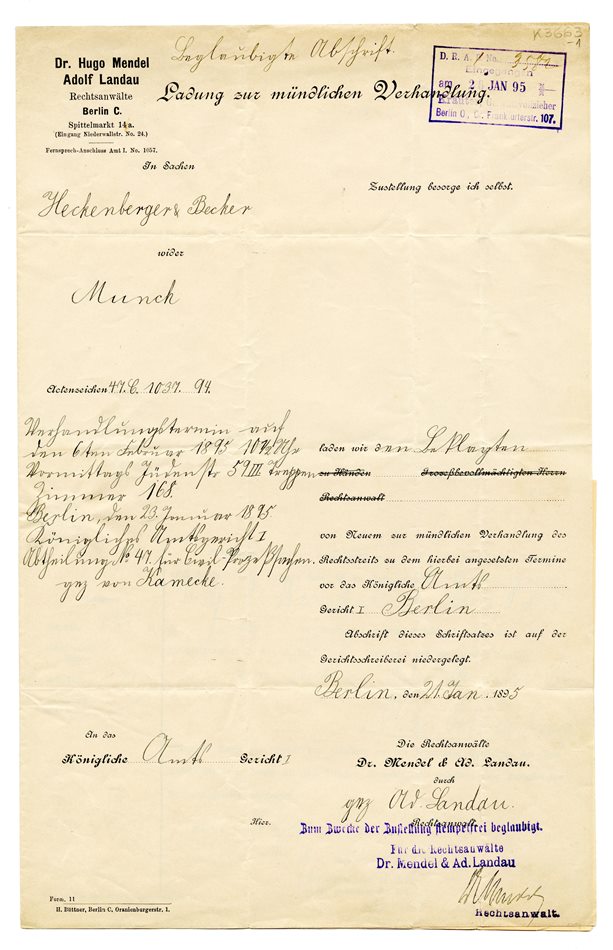 Beglaubigte Abschrift.
K3663
-1
Dr. Hugo Mendel
Adolf Landau
Rechtsanwälte
Berlin C.
Spittelmarkt 14a.
(Eingang Niederwallstr. No. 24.)
Fernsprech-Anschluss Amt I. No. 1057.
D. R. A. No.
Eingegangen
am 2 JAN 95
Berlin O., Gr. Frankfurterstr. 107.
Ladung zur mündlichen Verhandlung.
In Sachen
Zustellung besorge ich selbst.
Heckenberger & Becker
wider
Munch
Actenzeichen 47. C. 1037. 94.
Verhandlungstermin auf
den 6ten Februar 1895 10½ Uhr
Vormittags Jüdenstr 59 III Treppen
Zimmer 168.
Berlin, den 23. Januar 1895
Königliches Amtsgericht I
Abtheilung No 47. für Civil-Prozeßsachen.
gez von Kamecke.
laden wir den Beklagten
zu Händen Prozeßbevollmächtigten Herrn
Rechtsanwalt
von Neuem zur mündlichen Verhandlung des
Rechtsstreits zu dem hierbei angesetzten Termine
vor das Königliche Amts
Gericht I Berlin
Abschrift dieses Schriftsatzes ist auf der
Gerichtsschreiberei niedergelegt.
Berlin, den 21. Jan. 1895
An das
Königliche Amts Gericht I
Hier.
Die Rechtsanwälte
Dr. Mendel & Ad. Landau.
durch
gez Ad. Landau.
Rechtsanwalt
Zum Zwecke der Zustellung stempelfrei beglaubigt.
Für die Rechtsanwälte
Dr. Mendel & Ad. Landau
Rechtsanwalt.
Form. 11
H. Büttner, Berlin C. Oranienburgerstr. 1.